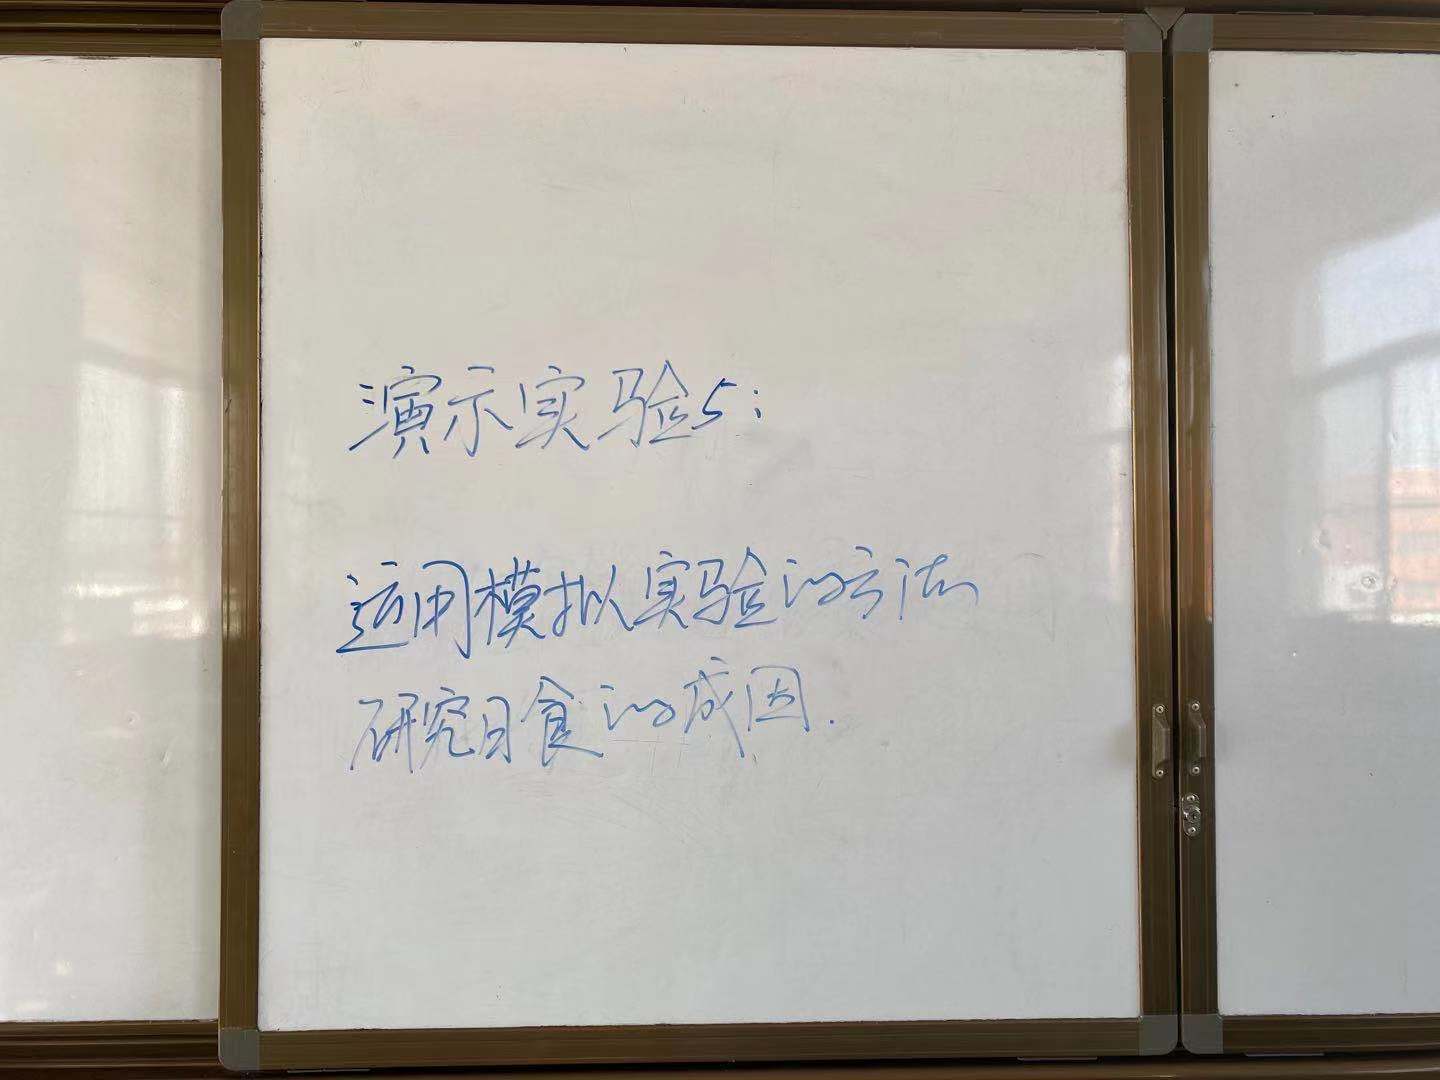 演示实验5:
运用模拟实验的方法
研究日食的成因.